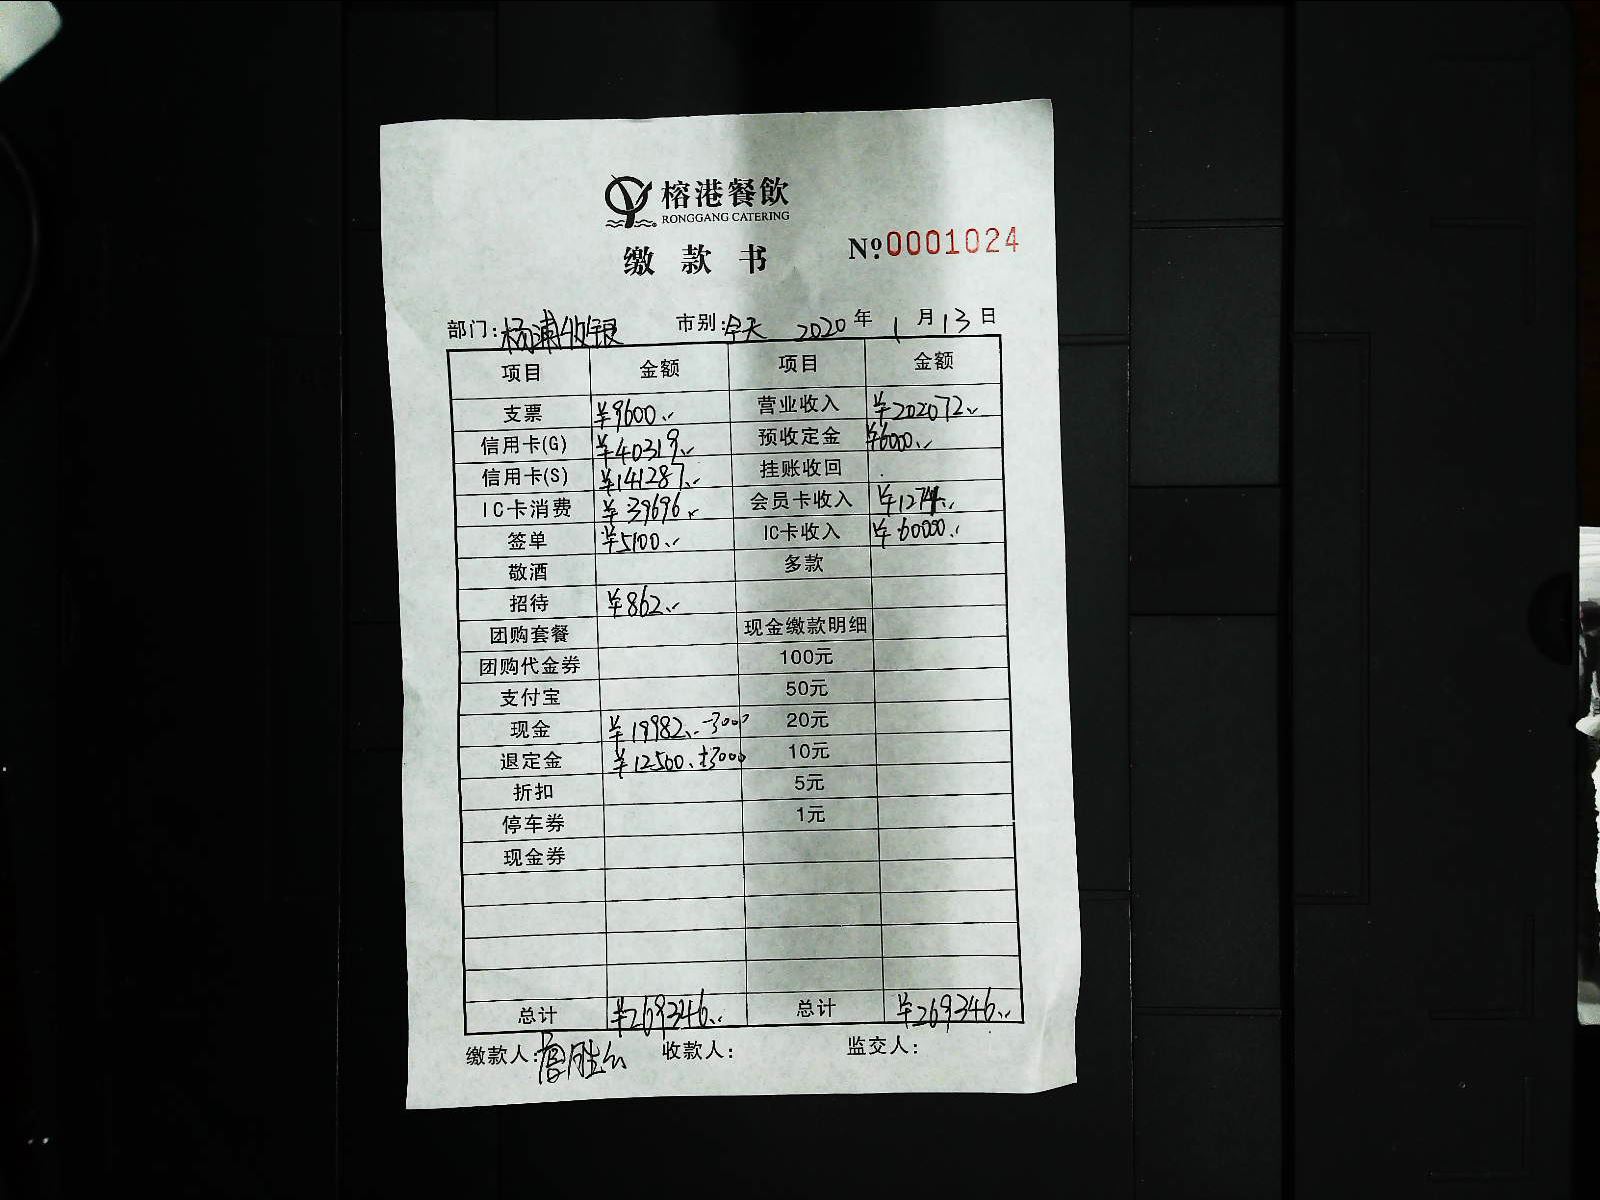 榕港餐飲
RONGGANG CATERING
缴款书
№0001024
部门:杨浦收银 市别:今天 2020年1月13日
项目 金额 项目 金额
支票 ¥9600 营业收入 ¥202072
信用卡(G) ¥40319 预收定金 ¥6000
信用卡(S) ¥141287 挂账收回
IC卡消费 ¥39696 会员卡收入 ¥1274
签单 ¥5100 IC卡收入 ¥60000
敬酒 多款
招待 ¥862
团购套餐 现金缴款明细
团购代金券 100元
支付宝 50元
现金 ¥19982 -3000 20元
退定金 ¥12500 +3000 10元
折扣 5元
停车券 1元
现金券
总计 ¥269346 总计 ¥269346
缴款人: 收款人: 监交人: